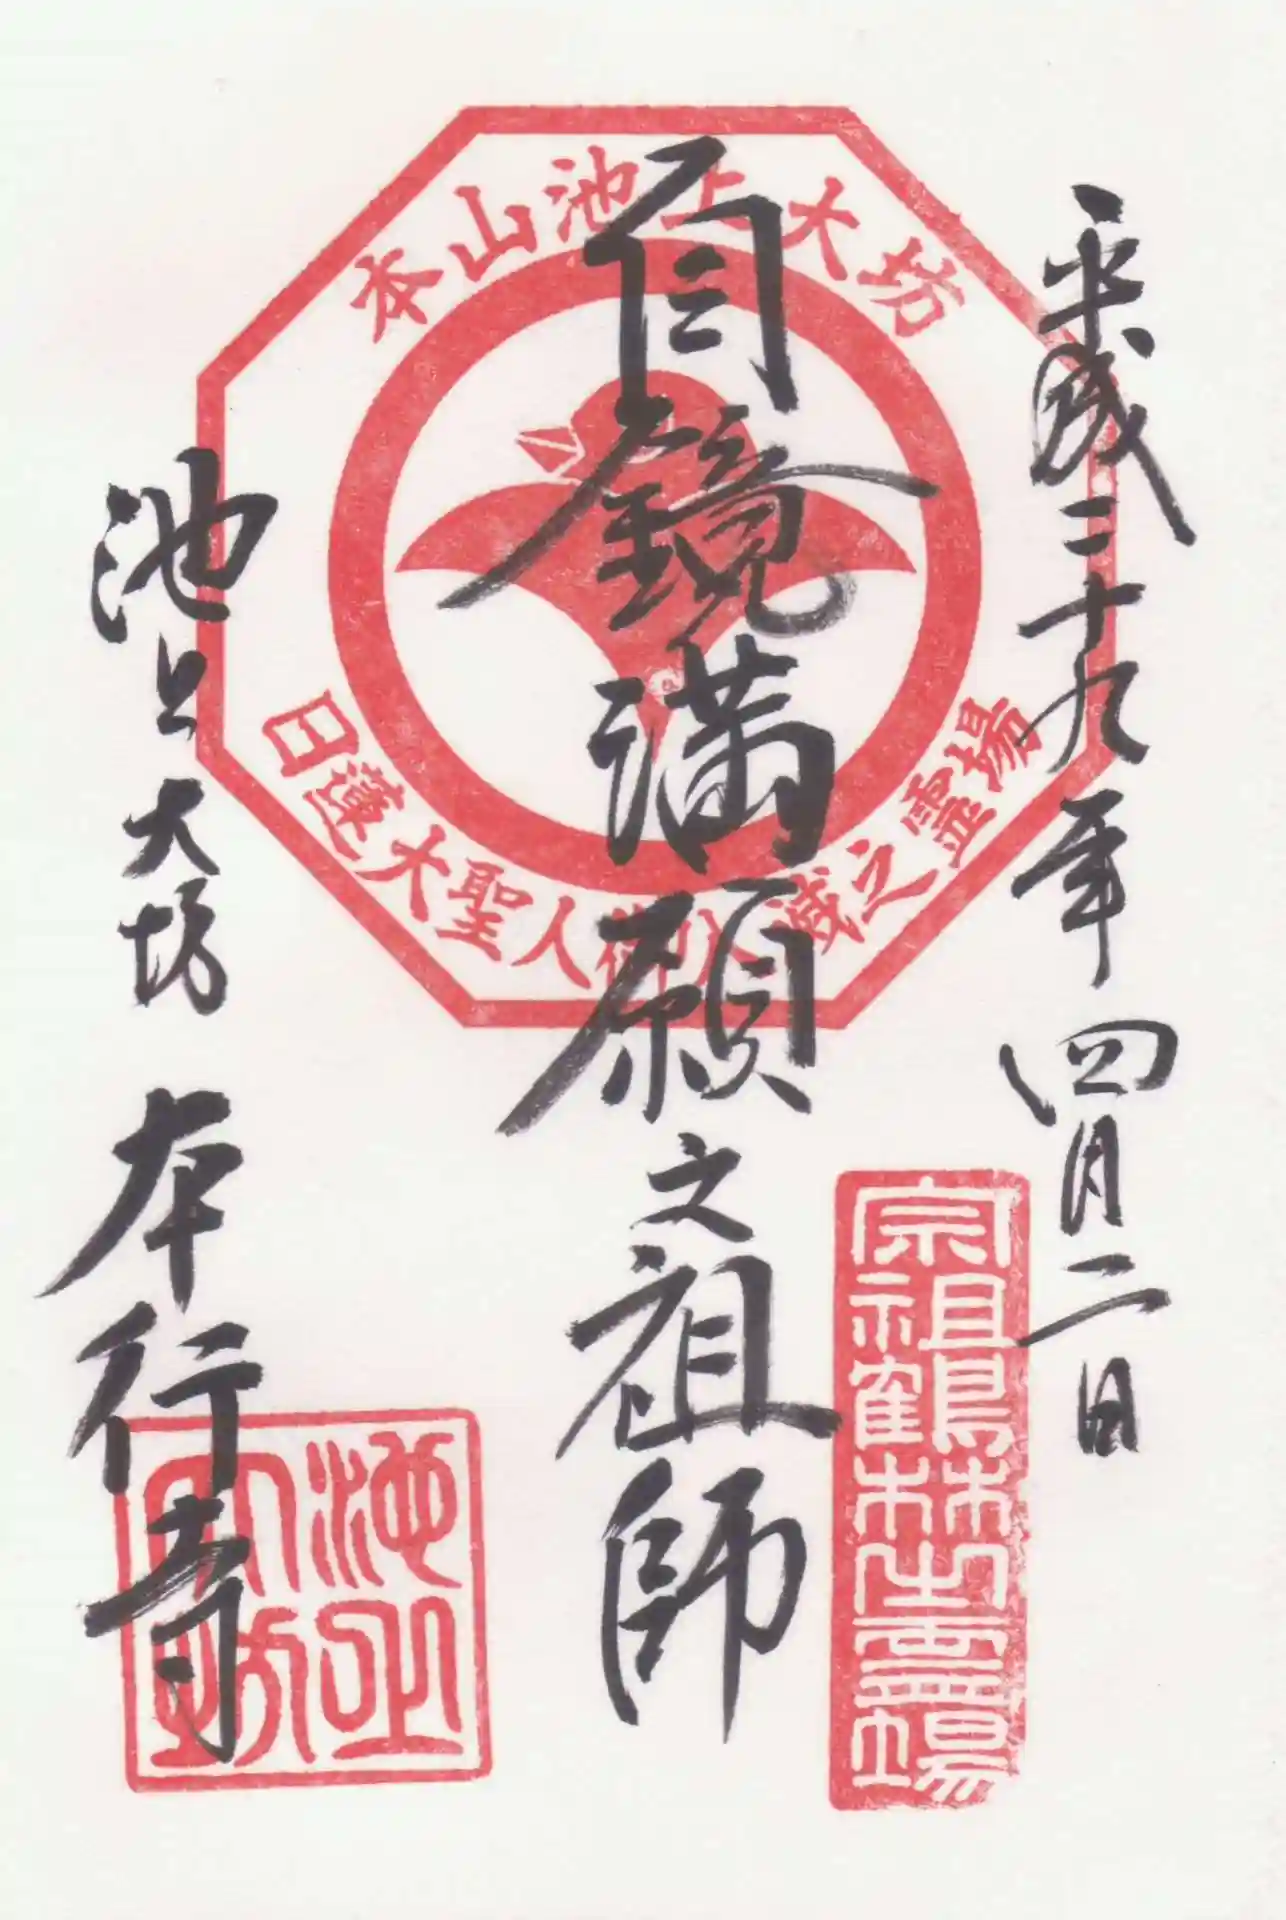 平成二十九年四月二日
宗祖鶴林之霊場
本山池上大坊
日蓮大聖人御入滅之霊場
自鏡満願之祖師
池上大坊 本行寺
池上大坊